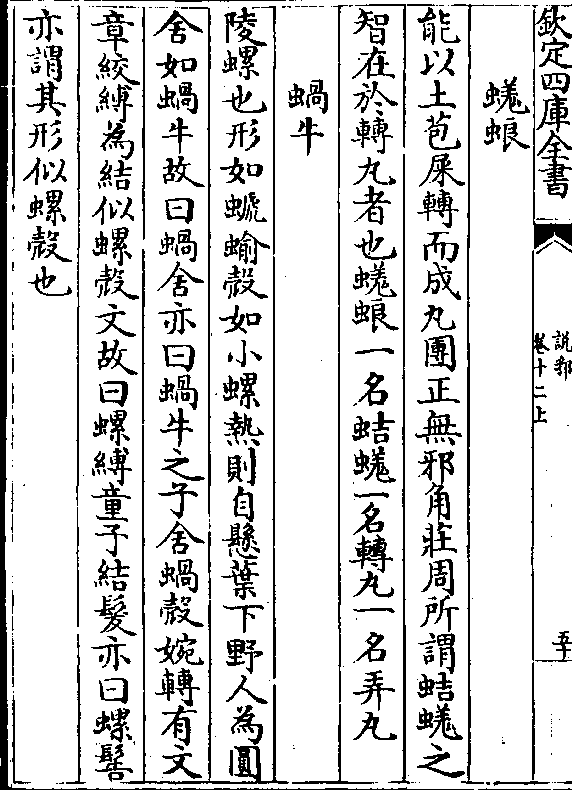 欽定四庫全書
說郛
卷十二上
五十
蜣蜋
能以土苞屎轉而成丸團正無邪角莊周所謂蛣蜣之
智在於轉丸者也蜣蜋一名蛣蜣一名轉丸一名弄丸
蝸牛
陵螺也形如螔蝓殼如小螺熱則自懸葉下野人為圓
舍如蝸牛故曰蝸舍亦曰蝸牛之子舍蝸殼婉轉有文
章絞縛為結似螺殼文故曰螺縛童子結髮亦曰螺髻
亦謂其形似螺殼也